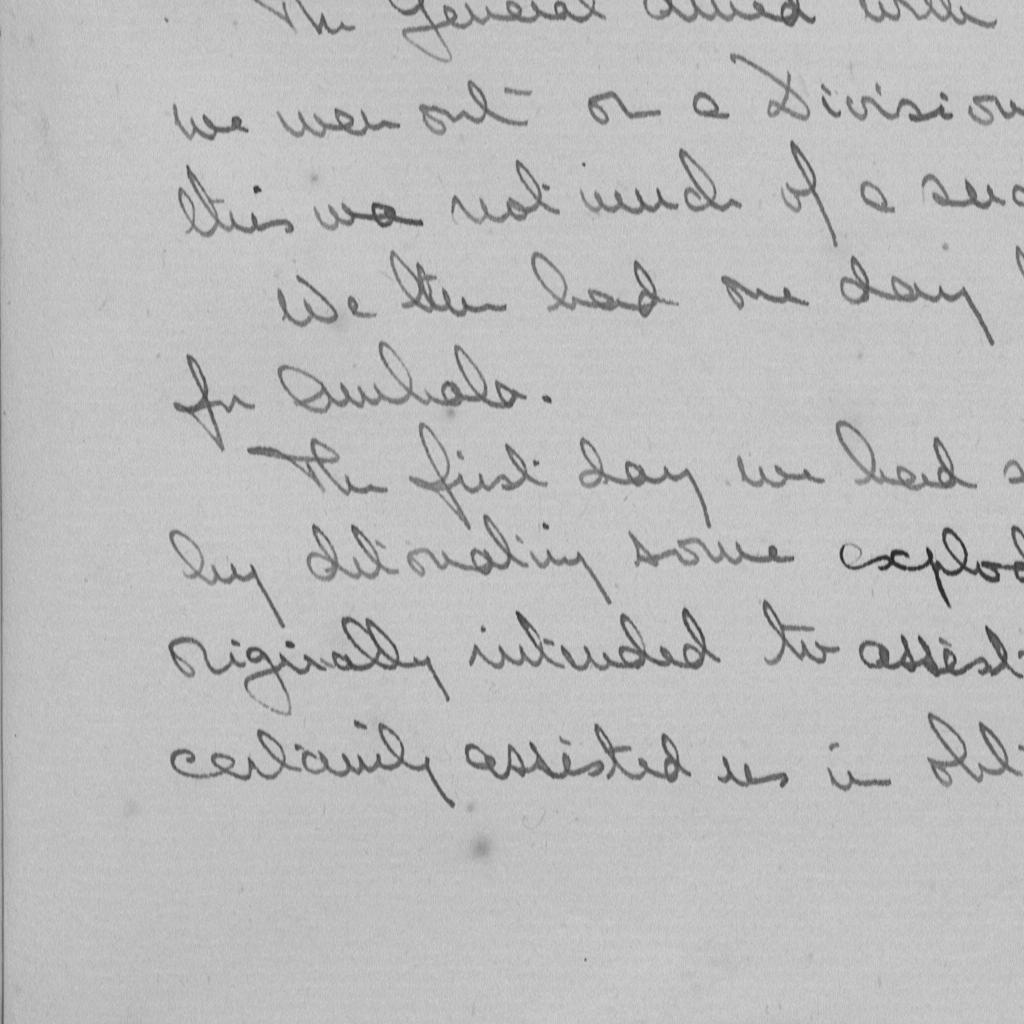 The General dined with
we were out on a Division
this was not much of a suc
We then had one day
for Ambala.
The first day we had s
by detonating some explod
originally intended to assist
certainly assisted us in obt